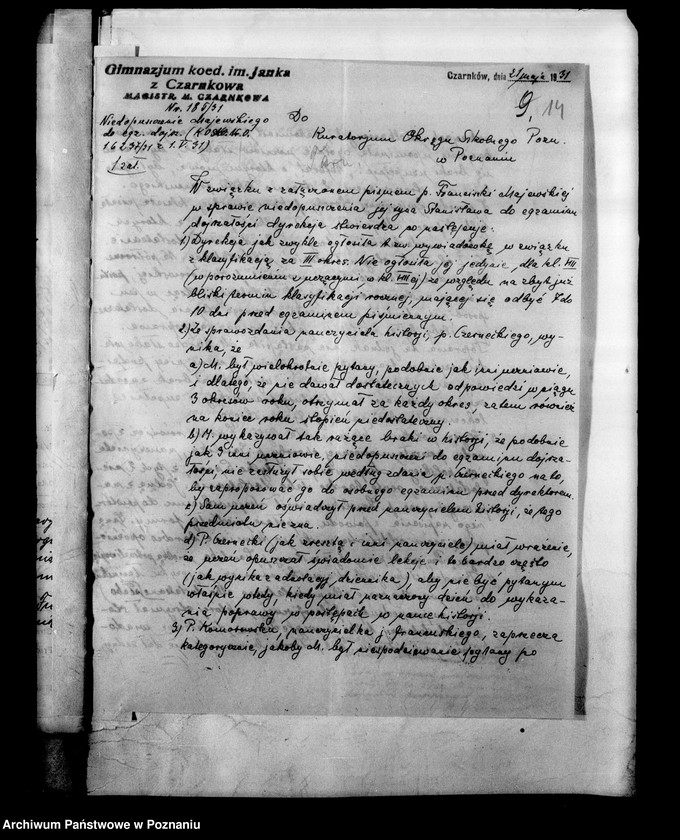 Gimnazjum koed. im. Janka
z Czarnkowa
MAGISTR. M. CZARNKOWA
Nr. 186/31
Czarnków, dnia 21 maja 1931
9, 14
Niedopuszczenie Majewskiego
do egz. dojrz. (K.O.S.
16237/31 z 1.V.31)
1 zał.
Do
Kuratorjum Okręgu Szkolnego Pozn.
w Poznaniu
W związku z załączonem pismem p. Franciszki Majewskiej
w sprawie niedopuszczenia jej syna Stanisława do egzaminu
dojrzałości dyrekcja stwierdza co następuje:
1) Dyrekcja jak zwykle ogłosiła t.zw. wywiadówkę w związku
z klasyfikacją za III okres. Nie ogłosiła jej jedynie dla kl. VIII
(w porozumieniu z uczącymi w kl. VIII ej) ze względu na zbyt już
bliski termin klasyfikacji rocznej, mającej się odbyć 7 do
10 dni przed egzaminem piśmiennym.
2) Ze sprawozdania nauczyciela historji, p. Czerneckiego, wy-
nika, że
a) M. był wielokrotnie pytany, podobnie jak inni uczniowie,
i dlatego, że nie dawał dostatecznych odpowiedzi w ciągu
3 okresów roku, otrzymał za każdy okres, zatem również
na koniec roku stopień niedostateczny.
b) M. wykazywał tak rażące braki w historji, że podobnie
jak 9 inni uczniowie, niedopuszczeni do egzaminu dojrza-
łości, nie zasłużył sobie według zdania p. Czerneckiego na to,
by zaproponować go do osobnego egzaminu przed dyrektorem.
c) Sam uczeń oświadczył przed nauczycielem historji, że tego
przedmiotu nie zna.
d) P. Czernecki (jak zresztą i inni nauczyciele) miał wrażenie,
że uczeń opuszczał świadomie lekcje i to bardzo często
(jak wynika z adnotacyj dziennika), aby nie być pytanym
właśnie wtedy, kiedy miał naznaczony dzień do wykaza-
nia poprawy w postępach w nauce historji.
3) P. Komorowska, nauczycielka j. francuskiego, zaprzecza
kategorycznie, jakoby M. był niespodziewanie pytany po
Archiwum Państwowe w Poznaniu